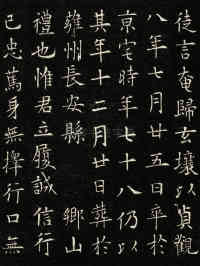 徒言奄歸玄壤以貞觀
八年七月廿五日卒於
京宅時年七十八仍以
其年十二月廿日葬於
雍州長安縣　鄉山
禮也惟君立履誠信行
己忠篤身無擇行口無